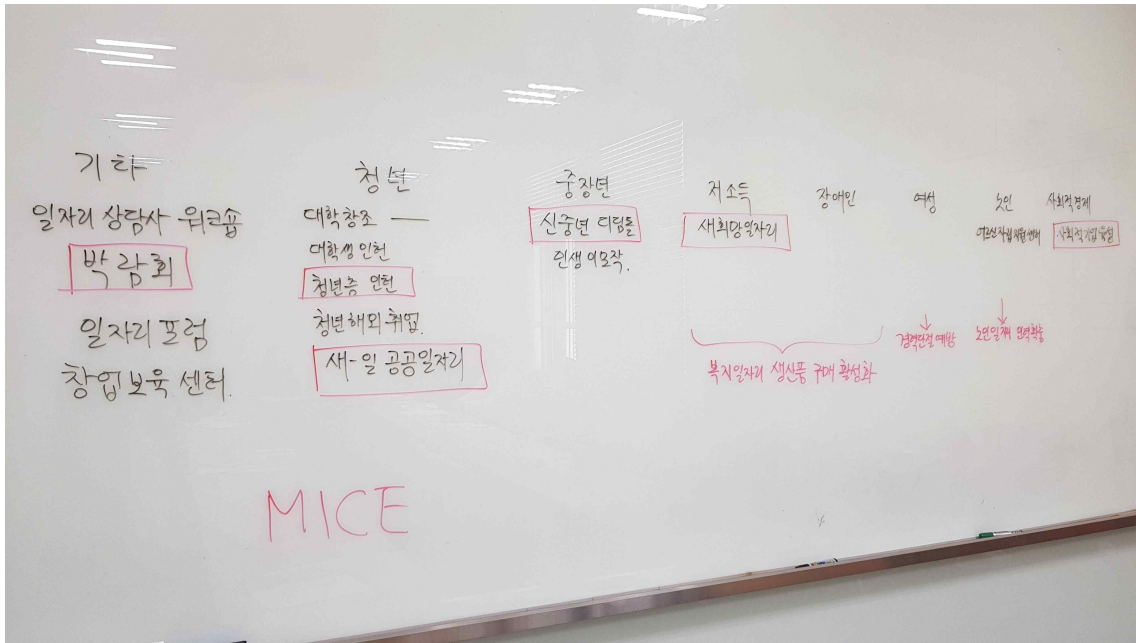 기타
일자리 상담사 워크숍
박람회
일자리 포럼
창업보육센터.
청년
대학창조 —
대학생 인턴
청년층 인턴
청년해외취업.
새-일 공공일자리
중장년
신중년 디딤돌
인생이모작.
저소득
새희망일자리
장애인
여성
노인
사회적경제
사회적기업육성
복지일자리 생산품 구매 활성화
경력단절예방
노인일자리 인력확충
MICE